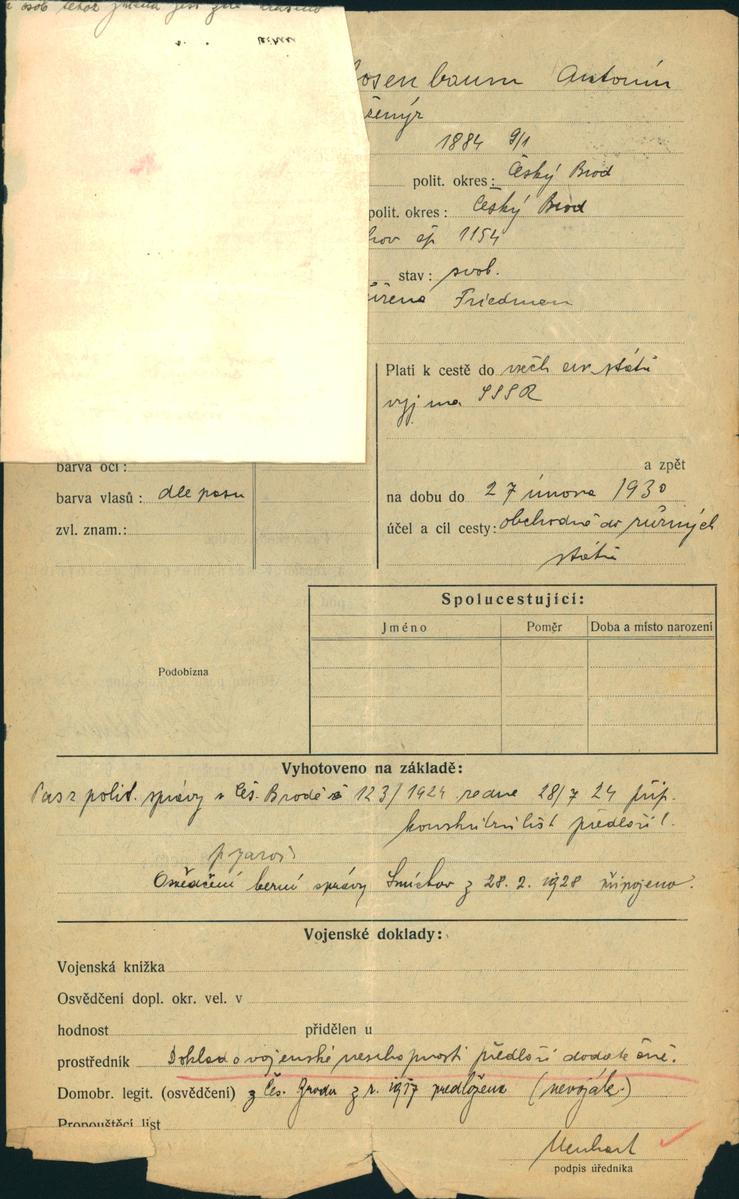 osob téhož jména jest zde hlášeno
osenbaum Antonín
ženýr
1884 9/1
polit. okres: Český Brod
polit. okres: Český Brod
hov čp 1154
stav: svob.
Friedman
Platí k cestě do všech eur. států
vyjma SSSR
barva očí:
a zpět
barva vlasů: dle pasu
na dobu do 27 února 1930
zvl. znam.:
účel a cíl cesty: obchodně do různých
států
Spolucestující:
Jméno Poměr Doba a místo narození
Podobizna
Vyhotoveno na základě:
Pas z polit. správy v Čes. Brodě č 123/1924 ze dne 28/7 24 přip.
předloží!
Osvědčení berní správy Smíchov z 28. 2. 1928 připojeno.
Vojenské doklady:
Vojenská knížka
Osvědčení dopl. okr. vel. v
hodnost přidělen u
prostředník Doklad o vojenské neschopnosti předloží dodatečně.
Domobr. legit. (osvědčení) z Čes. Brodu z r. 1917 předložena (nevoják.)
Propouštěcí list
podpis úředníka